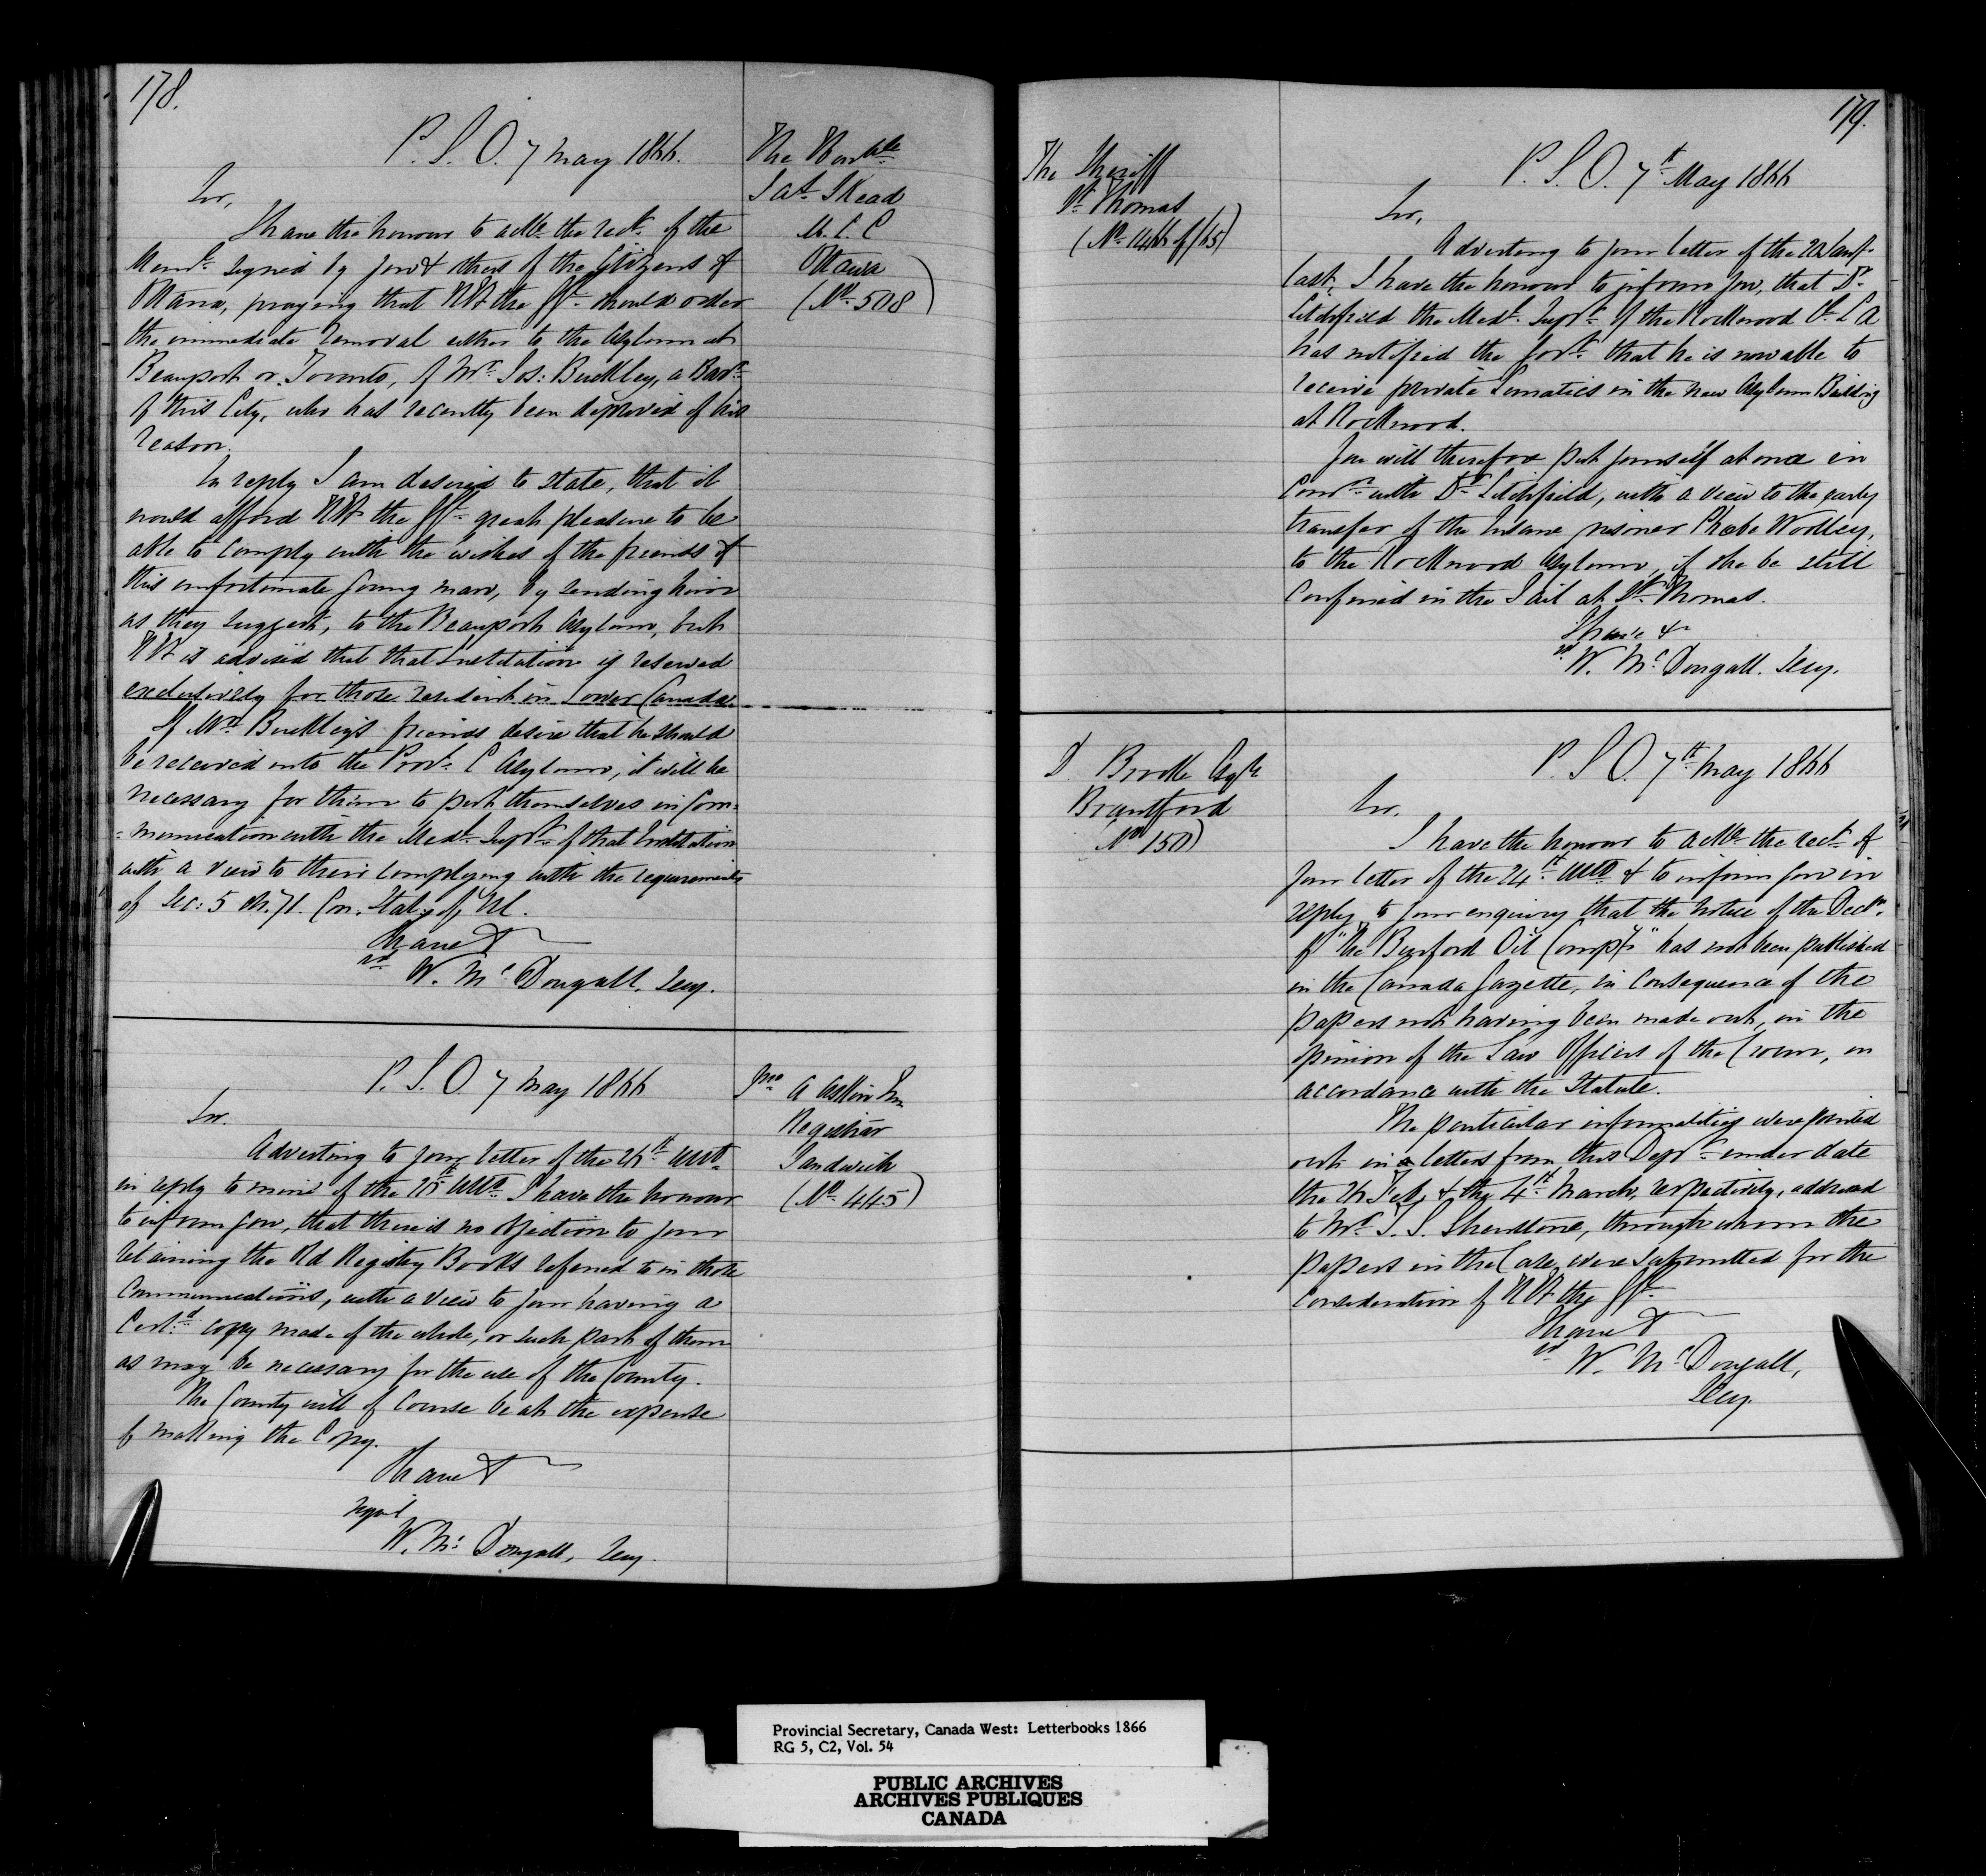 178.
P. S. O. 7 May 1866.
The Honble
Jas. Skead
M. L. C
Ottawa
(No. 508)
Sir,
I have the honour to ackle. the rect. of the
Meml. signed by you & others of the Citizens of
Ottawa, praying that H. E. the should order
the immediate removal either to the Asylum at
Beauport or Toronto, of Mr. Jos: Buckley, a Barr.
of this City, who has recently been deprived of his
reason.
In reply I am desired to state, that it
would afford H. E. the great pleasure to be
able to comply with the wishes of the friends of
this unfortunate young man, by sending him
as they suggest, to the Beauport Asylum, but
H. E. is advised that that Institution is reserved
exclusively for those resident in Lower Canada.
If Mr. Buckley's friends desire that he should
be received into the Provl. L Asylum, it will be
necessary for them to put themselves in Com=
=munication with the Medl. Supt. of that Institution
with a view to their complying with the requirements
of Sec: 5 Ch. 71. Con. Stat. of U.C.
I have &
sd. W. McDougall, Secy.
P. S. O. 7 May 1866
Jno. A Askin
Registrar
Sandwich
(No. 445)
Sir.
Adverting to your letter of the 26th. Ulto.
in reply to mine of the Ulto. I have the honour
to inform you, that there is no objection to your
retaining the Old Registry Books referred to in those
Communications, with a view to your having a
Cert:d copy made of the whole, or such part of them
as may be necessary for the use of the County.
The County will of Course be at the expense
of making the Copy.
I have &
signd
W. McDougall, Secy.
179.
The Sheriff
St. Thomas
(No. 1466 of /65)
P. S. O. 7th May 1866
Sir,
Adverting to your letter of the 22
last, I have the honour to inform you, that Dr.
Litchfield the Medl. Supt. of the Rockwood L A
has notified the Govt. that he is now able to
receive private Lunatics in the new Asylum Building
at Rockwood.
You will therefore put yourself at once in
Comn. with Dr. Litchfield, with a view to the early
transfer of the Insane prisoner Phebe Wodley,
to the Rockwood Asylum, if she be still
confined in the Jail at St. Thomas.
I have &
sd. W. McDougall. Secy.
Brooke Esqre
Brantford
(No. 150)
P. S. O. 7th May 1866
Sir.
I have the honour to ackle. the rect. of
your letter of the 24th. Ulto & to inform you in
reply to your enquiry that the notice of the Decln.
of "The Burford Oil Compy." has not been published
in the Canada Gazette, in consequence of the
papers not having been made out, in the
opinion of the Law Officers of the Crown, in
accordance with the Statute.
The particular informalities were pointed
out in letters from this Dept. under date
the 26 Feby & the 4th. March, respectively, addressed
to Mr. Shenstone, through whom the
papers in the Case were submitted for the
consideration of H. E. the
I have &
sd. W. McDougall,
Secy.
Provincial Secretary, Canada West: Letterbooks 1866
RG 5, C2, Vol. 54
PUBLIC ARCHIVES
ARCHIVES PUBLIQUES
CANADA